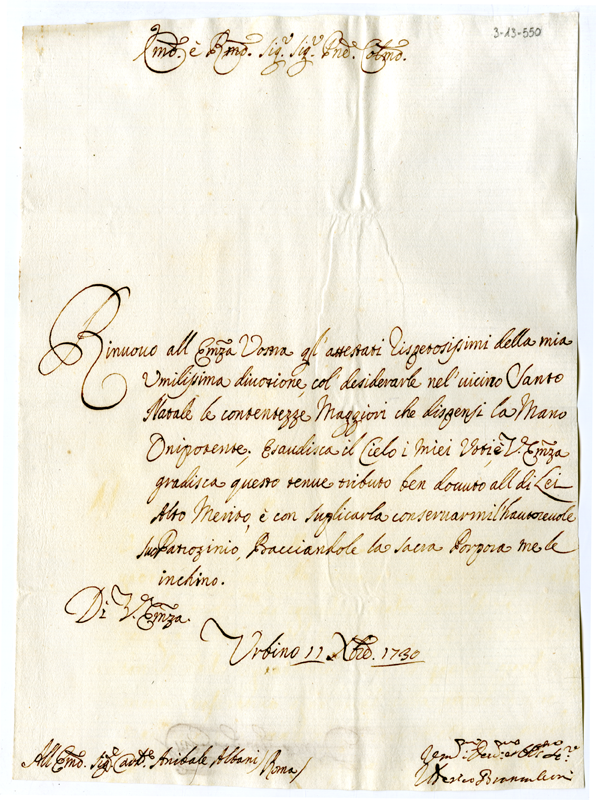 3-13-550
Emo. è Rmo. Sig.re Sig.re Pne. Colmo.
Rinuovo all Emza Vostra gl'attestati rispetosissimi della mia
Umilissima divotione, col' desiderarle nel' vicino Santo
Natale le contentezze Maggiori che dispensi la Mano
Onipotente. Esaudisca il Cielo i Miei Voti, è V. Emza
gradisca questo tenue tributo ben dovuto all di Lei
Alto Merito, è con suplicarla conservarmi l'hautorevole
suo Patrozinio, Bacciandole la sacra Porpora me le
inchino.
Di V. Emza.
Urbino 11 Xbre. 1730
All Emo. Sig.re Card.le Anibale Albani / Roma /